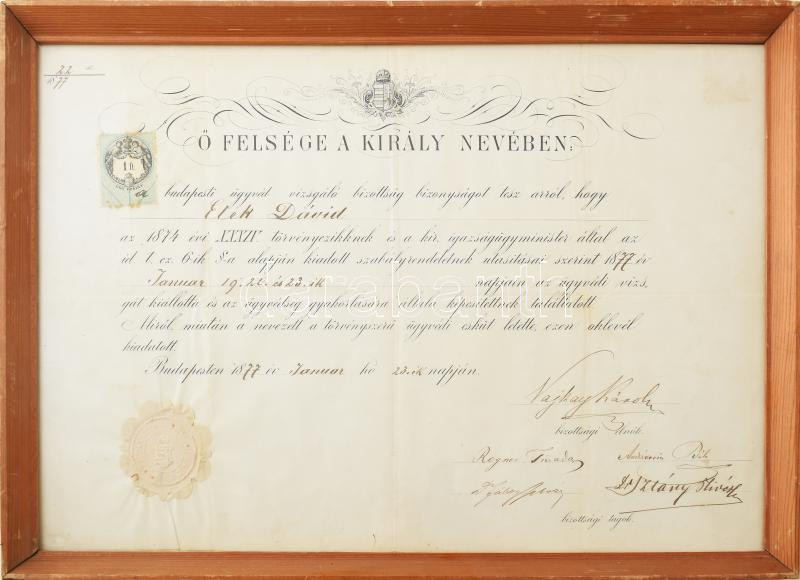 22
1877
Ő FELSÉGE A KIRÁLY NEVÉBEN:
1 ft.
a budapesti ügyvéd vizsgáló bizottság bizonyságot tesz arról, hogy
Elek Dávid
az 1874 évi XXXIV. törvényczikknek és a kir. igazságügyminister által az
id. t. cz. 6-ik §-a alapján kiadott szabályrendeletnek utasításai szerint 1877 év
Januar 19. 22. és 23. ik napjain az ügyvédi vizs,
gát kiállotta és az ügyvédség gyakorlására általa képesítettnek találtatott.
Miről, miután a nevezett a törvényszerű ügyvédi esküt letette, ezen oklevél
kiadatott.
Budapesten 1877 év Januar hó 23. ik napján.
darabanth
Vajkay Károly
bizottsági elnök.
bizottsági tagok.